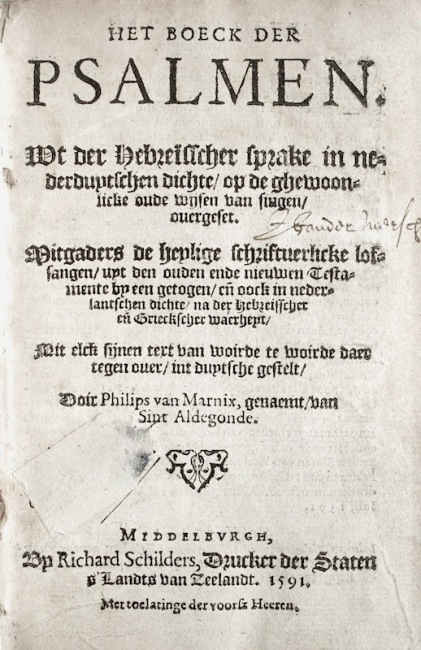 HET BOECK DER
PSALMEN.
Wt der Hebreisscher sprake in ne-
derduytschen dichte/ op de ghewoon-
licke oude wysen van singen/
overgeset.
Mitgaders de heylige schriftuerlicke lof-
sangen/ uyt den ouden ende nieuwen Testa-
mente by een getogen/ eñ oock in neder-
lantschen dichte/ na der Hebreisscher
eñ Grieckscher waerheyt/
Mit elck sijnen text van woirde te woirde daer
tegen over/ int duytsche gestelt/
Doir Philips van Marnix, genaemt/van
Sint Aldegonde.
MIDDELBVRGH,
By Richard Schilders, Drucker der Staten
s'Landts van Zeelandt. 1591.
Met toelatinge der voorsz Heeren.